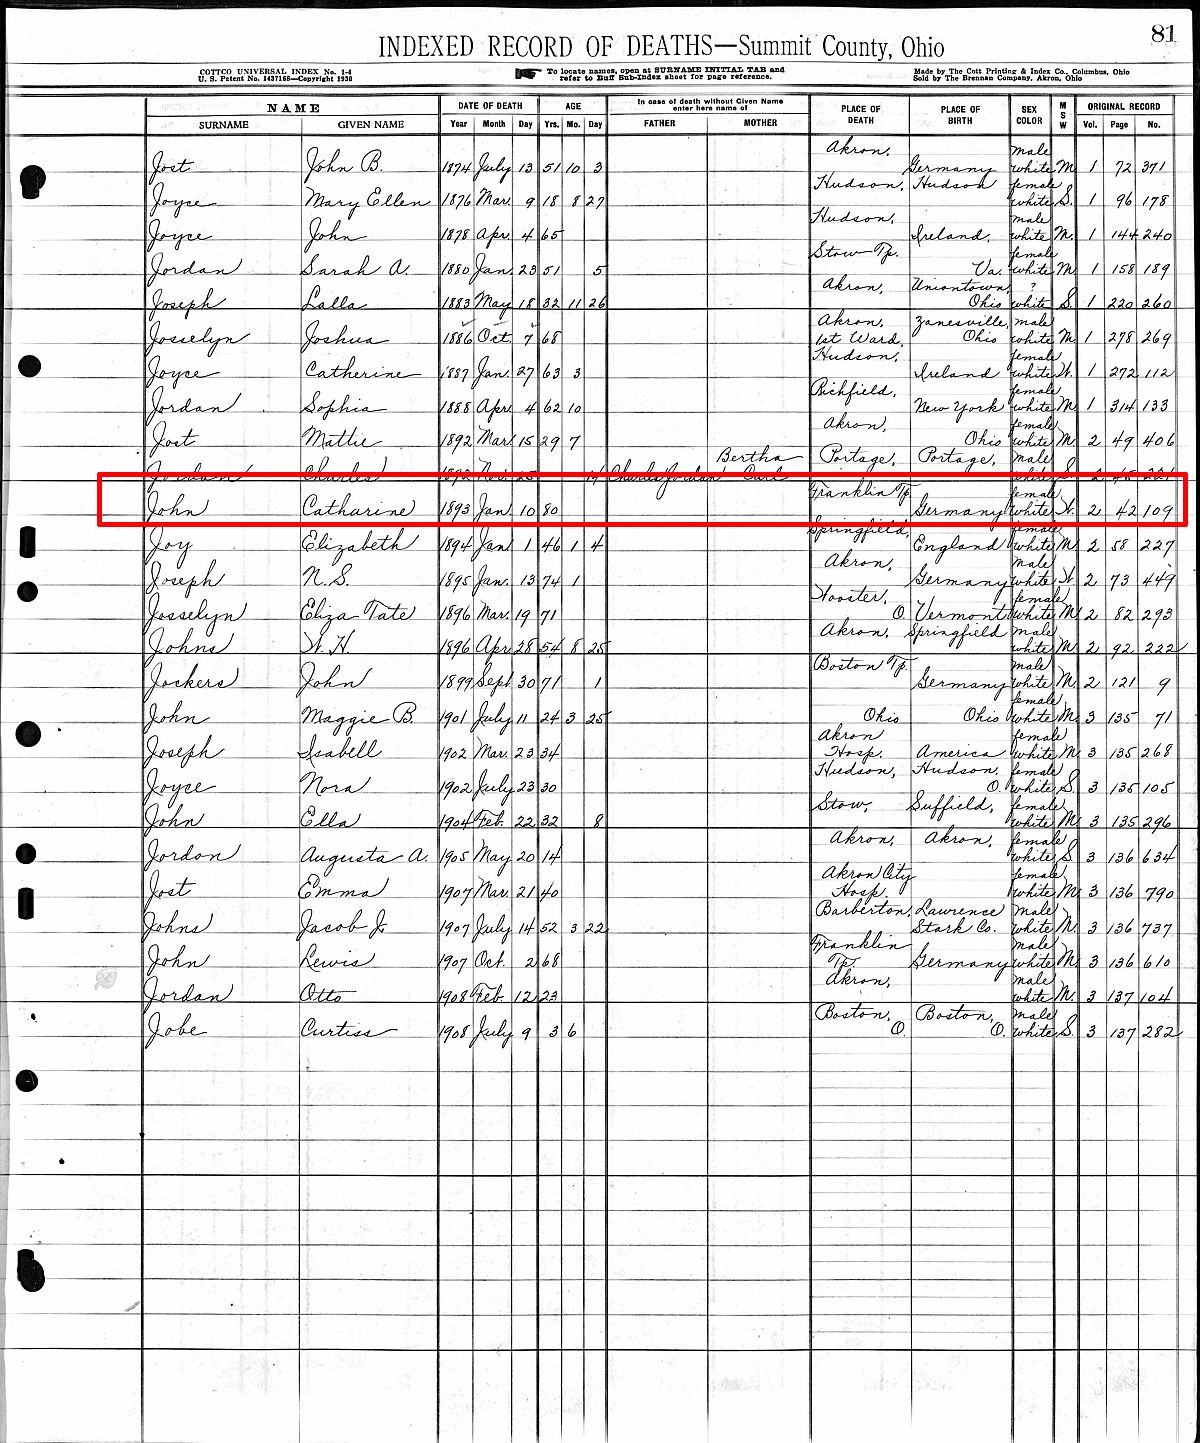 81
INDEXED RECORD OF DEATHS—Summit County, Ohio
COTTCO UNIVERSAL INDEX No. 1-4
U. S. Patent No. 1437168—Copyright 1930
To locate names, open at SURNAME INITIAL TAB and
refer to Buff Sub-Index sheet for page reference.
Made by The Cott Printing & Index Co., Columbus, Ohio
Sold by The Brennan Company, Akron, Ohio
NAME DATE OF DEATH AGE In case of death without Given Name enter here name of PLACE OF DEATH PLACE OF BIRTH SEX COLOR M S W ORIGINAL RECORD
SURNAME GIVEN NAME Year Month Day Yrs. Mo. Day FATHER MOTHER Vol. Page No.
Jost John B. 1874 July 13 51 10 3 Akron, Germany male white M 1 72 371
Joyce Mary Ellen 1876 Mar. 9 18 8 27 Hudson, Hudson female white S. 1 96 178
Joyce John 1878 Apr. 4 65 Hudson, Ireland, male white M. 1 144 240
Jordan Sarah A. 1880 Jan. 23 51 5 Stow Tp. Va. female white M 1 158 189
Joseph Lalla 1883 May 18 32 11 26 Akron, Uniontown, Ohio ? white S. 1 220 260
Josselyn Joshua 1886 Oct. 7 68 Akron, 1st Ward, Zanesville, Ohio male white M. 1 278 269
Joyce Catherine 1887 Jan. 27 63 3 Hudson, Ireland female white W. 1 272 112
Jordan Sophia 1888 Apr. 4 62 10 Richfield, New York female white M. 1 314 133
Jost Mattie 1892 Mar. 15 29 7 Akron, Ohio female white M. 2 49 406
Jordan Charles 1892 Nov. 25 14 Charles Jordan Bertha Card Portage, Portage, male white S. 2 221
John Catharine 1893 Jan. 10 80 Franklin Tp. Germany female white W. 2 42 109
Joy Elizabeth 1894 Jan. 1 46 1 4 Springfield, England female white M. 2 58 227
Joseph N.S. 1895 Jan. 13 74 1 Akron, Germany male white W. 2 73 449
Josselyn Eliza Tate 1896 Mar. 19 71 Wooster, O. Vermont female white M. 2 82 293
Johns W. H. 1896 Apr. 28 54 8 25 Akron, Springfield male white M. 2 92 222
Jockers John 1899 Sept. 30 71 1 Boston Tp. Germany male white M. 2 121 9
John Maggie B. 1901 July 11 24 3 25 Ohio Ohio female white M. 3 135 71
Joseph Isabell 1902 Mar. 23 34 Akron Hosp. America female white M. 3 135 268
Joyce Nora 1902 July 23 30 Hudson, Hudson, O. female white S. 3 135 105
John Ella 1904 Feb. 22 32 8 Stow, Suffield, female white M. 3 135 296
Jordon Augusta A. 1905 May 20 14 Akron, Akron, female white S. 3 136 634
Jost Emma 1907 Mar. 21 40 Akron City Hosp. female white M. 3 136 790
Johns Jacob J. 1907 July 14 52 3 22 Barberton, Lawrence Stark Co. male white M. 3 136 737
John Lewis 1907 Oct. 2 68 Franklin Tp. Germany male white M. 3 136 610
Jordan Otto 1908 Feb. 12 23 Akron, male white M. 3 137 104
Jobe Curtiss 1908 July 9 3 6 Boston, O. Boston, O. male white S. 3 137 282